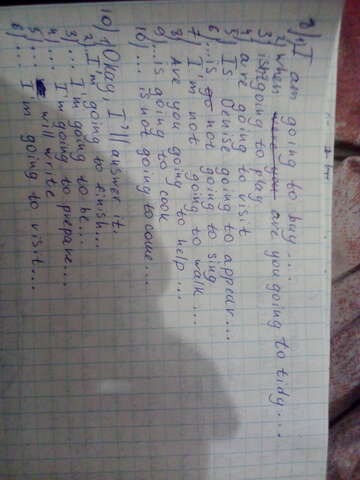 9) 1. I am going to buy...
2) when are you going to tidy...
3. is going to play
4. are going to visit
5) Is Denise going to appear...
6 ...is not going to sing
7) I'm not going to walk...
8. Are you going to help...
9. ...is going to cook
10) ... is not going to come...
10) 1) Okay, I'll answer it.
2) I'm going to finish...
3) ... I'm going to be...
4.... I'm going to prepare...
5.... will write
6)... I'm going to visit...